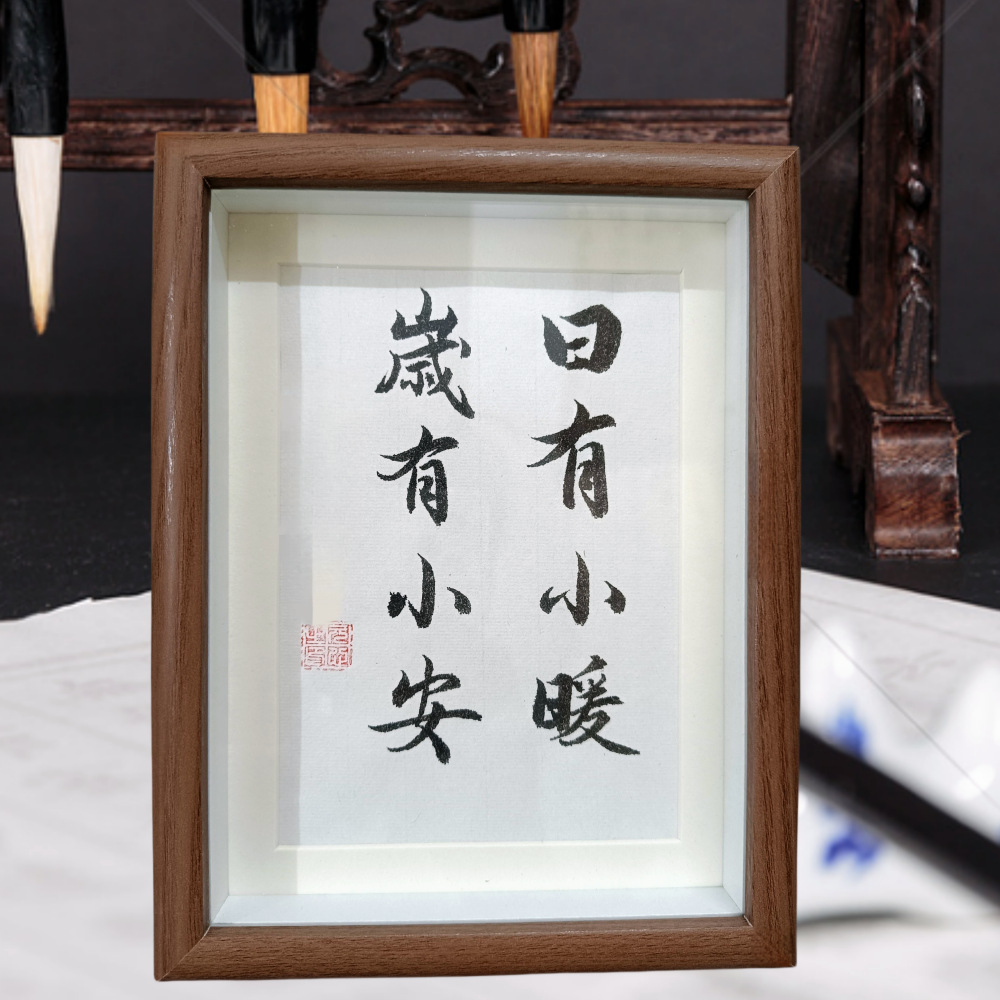 日有小暖
歲有小安